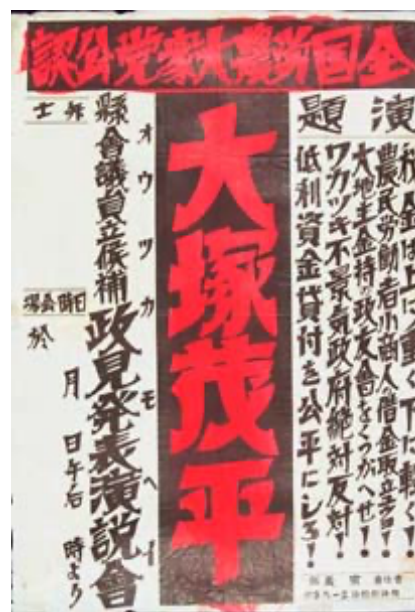 全国労農大衆党公認
演題
税金は上に重く下に軽く!
農民労働者小商人の借金取立禁止!
大地主金持政友会をくつがへせ!
ワカツキ不景気政府絶対反対!
低利資金貸付を公平にしろ!
大塚茂平
オウツカモヘー
縣會議員立候補政見発表演説會
弁士
日時会場
月日午后時より
於